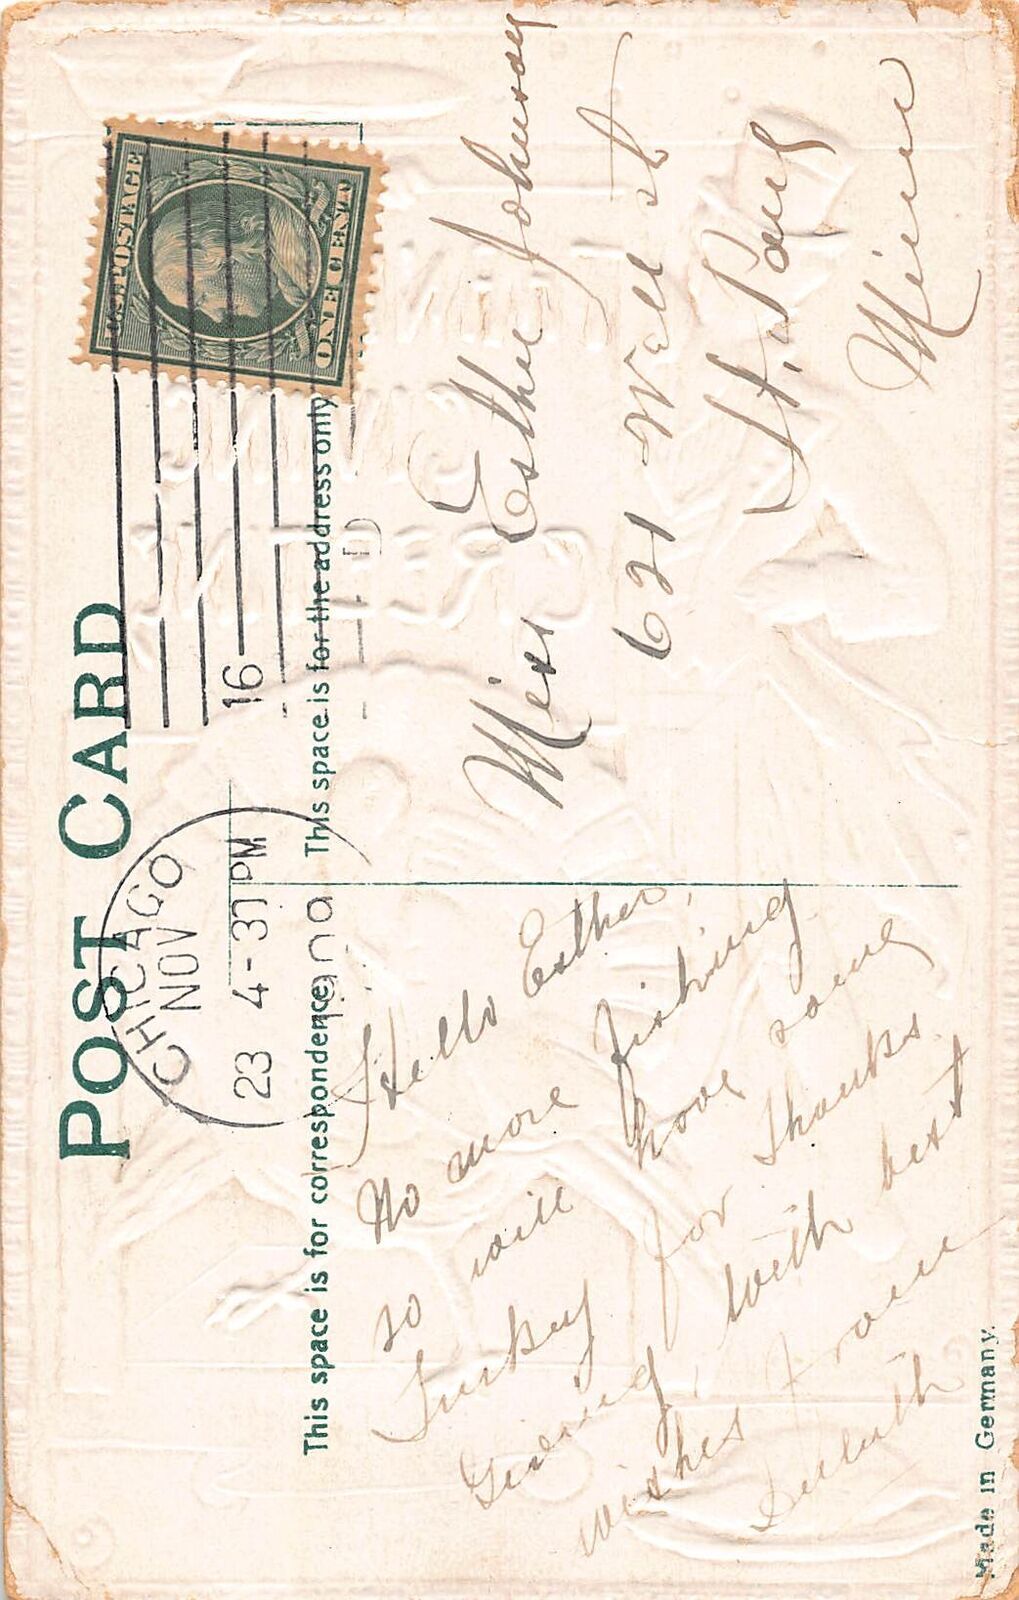 POST CARD
CHICAGO
NOV
23 4-30 PM
16
U.S. POSTAGE
ONE CENT
This space is for correspondence
This space is for the address only
Hello Esther,
No more fishing
so will have some
Turkey for Thanks
Giving, with best
wishes from
Duluth
Miss Esther Johnson
621 Wells St
St. Paul
Minn
Made in Germany.